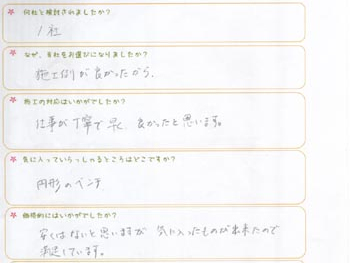 何社と検討されましたか?
1社
なぜ、当社をお選びになりましたか?
施工例が良かったから.
施工の対応はいかがでしたか?
仕事が丁寧で早く 良かったと思います。
気に入っていらっしゃるところはどこですか?
円形のベンチ
価格的にはいかがでしたか?
安くはないと思いますが 気に入ったものが出来たので
満足しています。